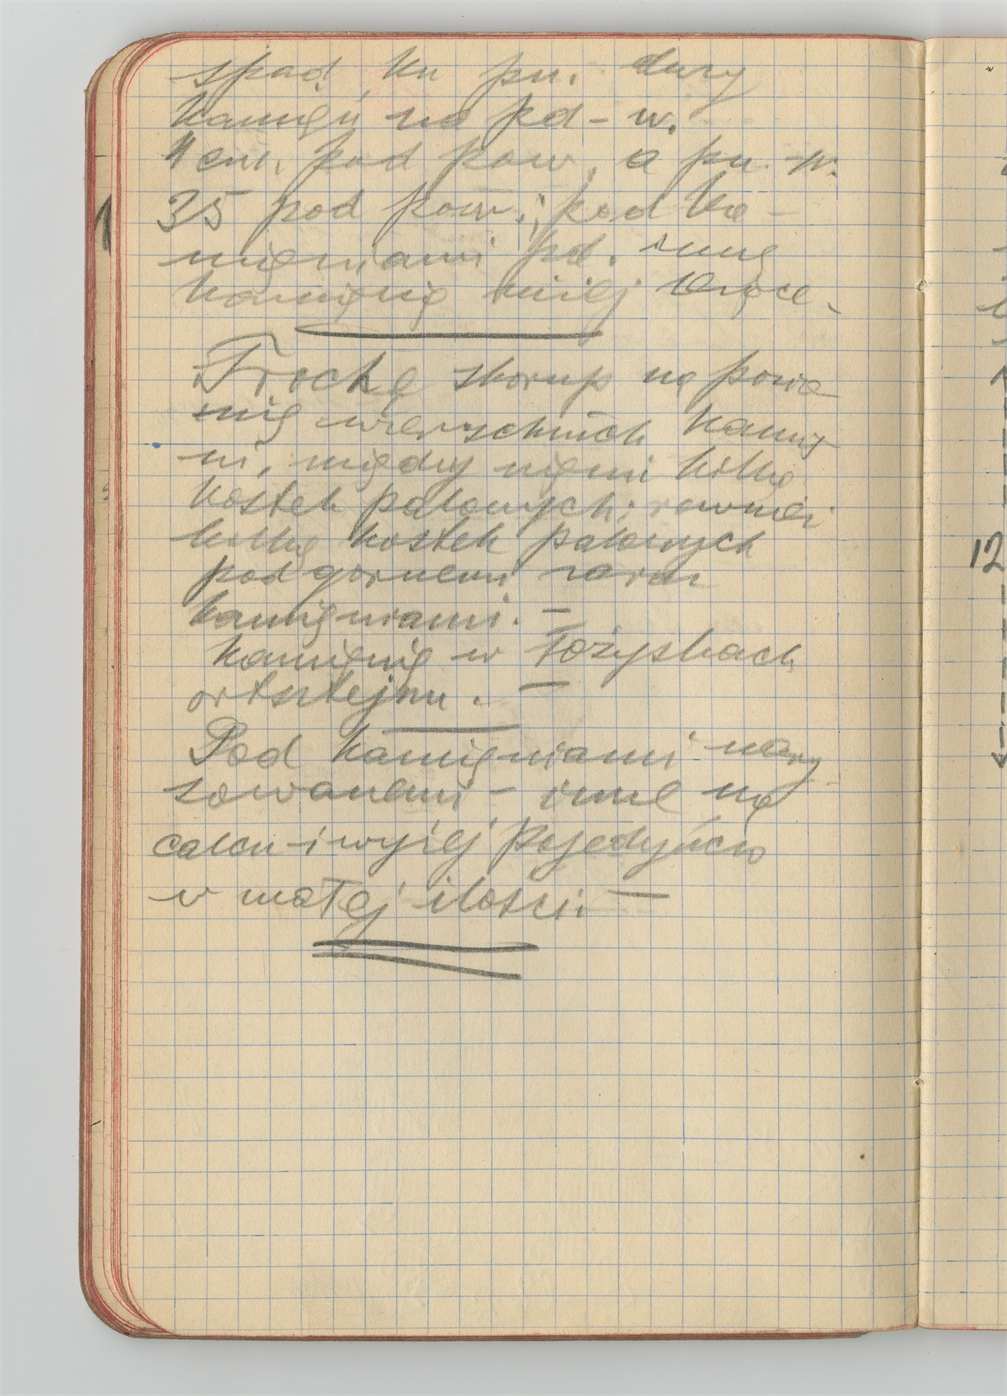 spad ku pn. duży
kamień na pd-w.
11 cm. pod pow. a pn. -w.
35 pod pow.; pod ka-
mieniami pd. inne
kamienie niżej
Trochę skorup na powie
mię wierzchnich kamie
ni, między niemi kilka
kostek palonych; również
kilka kostek palonych
pod górnemi zaraz
kamieniami. –
Kamienie w łożyskach
ortsztejnu. –
Pod kamieniami nary
sowanemi – inne na
calcu i wyżej pojedyńczo
w małej ilości. –
12